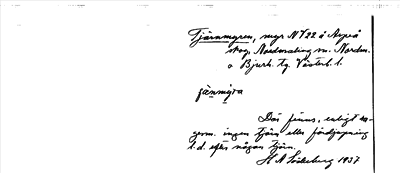 Tjärnmyren, myr NV82 å Nyeå
skog, Nordmaling sn. Nordm.
o Bjurh. tg. Västerb. l.
jä̀nmýra
Där finns, enligt
ingen tjärn eller fördjupning
t.d. efter någon tjärn.
H N Söderberg 1937